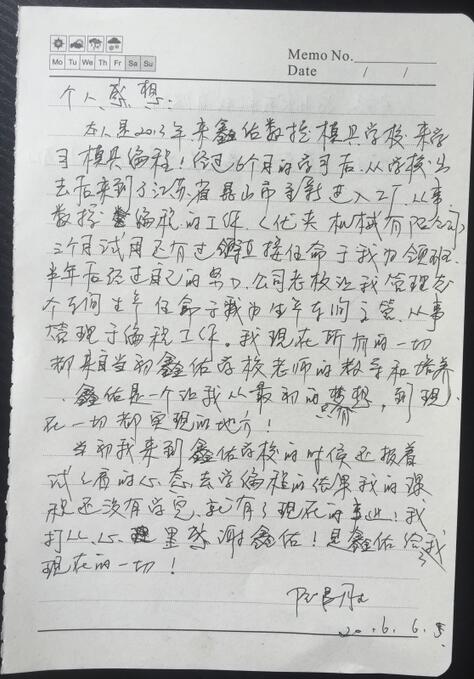 Memo No.
Mo Tu We Th Fr Sa Su
Date / /
个人感想:
本人是2013年来鑫佑数控模具学校来学
习模具编程!经过6个月的学习后.从学校出
去后来到了江苏省昆山市重新进入工厂.从事
数控编程的工作.(优夹机械有限公司)
三个月试用还有过就直接任命于我为领班.
半年后经过自己的努力.公司老板让我管理整
个车间生产任命于我为生产车间主管.从事
管理于编程工作。我现在所拥有的一切
都来自当初鑫佑学校老师的教导和培养
.鑫佑是一个让我从最初的梦想,到现
只有
在一切都实现的地方!
当初我来到鑫佑学校的时候还报着
试试看的心态去学编程的结果我的课
程还没有学完,就有了现在的事业!我
打从心里感谢鑫佑!是鑫佑给我
现在的一切!
20.6.6.